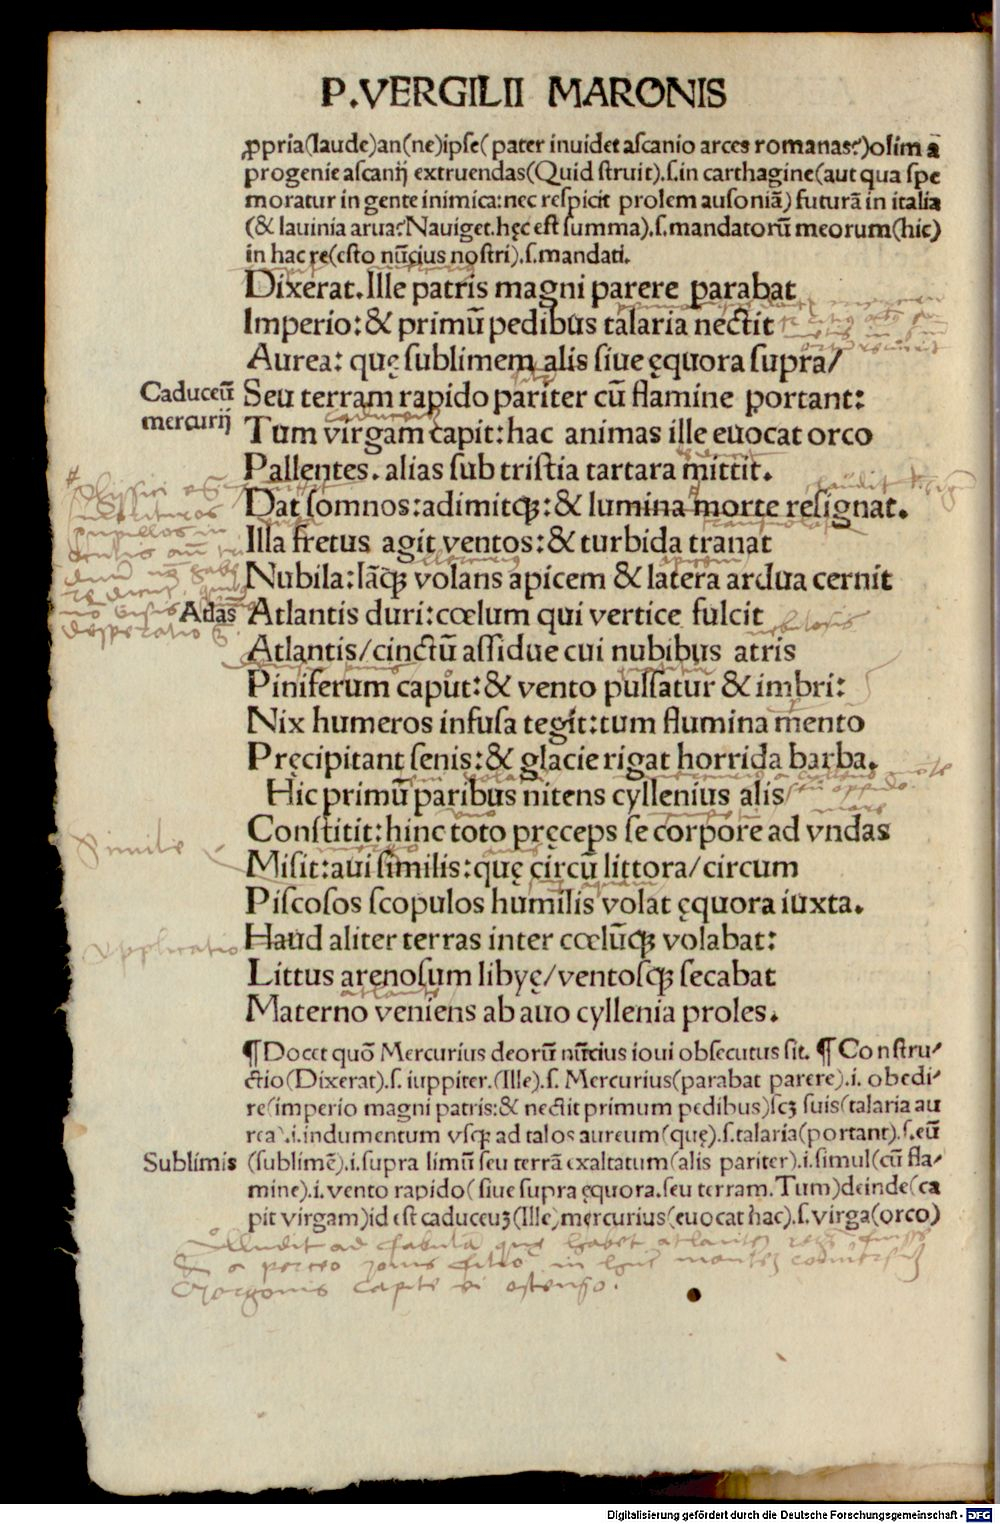 P.VERGILII MARONIS
ꝓpria(laude)an(ne)ipse( pater inuidet ascanio arces romanas?)olim ā
progenie ascanij extruendas(Quid struit).ſ.in carthagine(aut qua spe
moratur in gente inimica:nec respicit prolem ausoniā) futurā in italia
(& lauinia arua?Nauiget.hęc est summa).ſ.mandatorū meorum(hic)
in hac re(esto nūcius nostri).ſ.mandati.
Dixerat.Ille patris magni parere parabat
Imperio:& primū pedibus talaria nectit
Aurea: quę sublimem alis siue ęquora supra/
Caduceū
mercurij
Seu terram rapido pariter cū flamine portant:
Tum virgam capit:hac animas ille euocat orco
Pallentes. alias sub tristia tartara mittit.
Dat somnos:adimitqꝫ:& lumina morte resignat.
Illa fretus agit ventos:& turbida tranat
Nubila:Iāqꝫ volans apicem & latera ardua cernit
Atlas
Atlantis duri:cœlum qui vertice fulcit
Atlantis/cinctū assidue cui nubibus atris
Piniferum caput:& vento pulsatur & imbri:
Nix humeros infusa tegit:tum flumina mento
Pręcipitant senis:& glacie rigat horrida barba.
Hic primū paribus nitens cyllenius alis
Constitit:hinc toto pręceps se corpore ad vndas
Similis
Misit:aui similis:quę circū littora/circum
Piscosos scopulos humilis volat ęquora iuxta.
Applicatio
Haud aliter terras inter cœlūqꝫ volabat:
Littus arenosum libyę/ventosqꝫ secabat
Materno veniens ab auo cyllenia proles.
¶Docet quō Mercurius deorū nūcius ioui obsecutus sit. ¶Constru/
ctio(Dixerat).ſ. iuppiter.(Ille).ſ. Mercurius(parabat parere).i. obedi/
re(imperio magni patris:& nectit primum pedibus)scꝫ suis(talaria au
rea).i.indumentum vsqꝫ ad talos aureum(quę).ſ.talaria(portant).ſ.eū
Sublimis
(sublimē).i.supra limū seu terrā exaltatum(alis pariter).i.simul(cū fla/
mine).i.vento rapido(siue supra ęquora.seu terram.Tum)deinde(ca
pit virgam)id est caduceuꝫ(Ille)mercurius(euocat hac).ſ.virga(orco)
Alludit ad fabulā que habet atlantē
a perseo Iouis filio in hunc montē conuersuꝫ
Gorgonis capite ei ostenso.
Digitalisierung gefördert durch die Deutsche Forschungsgemeinschaft - DFG